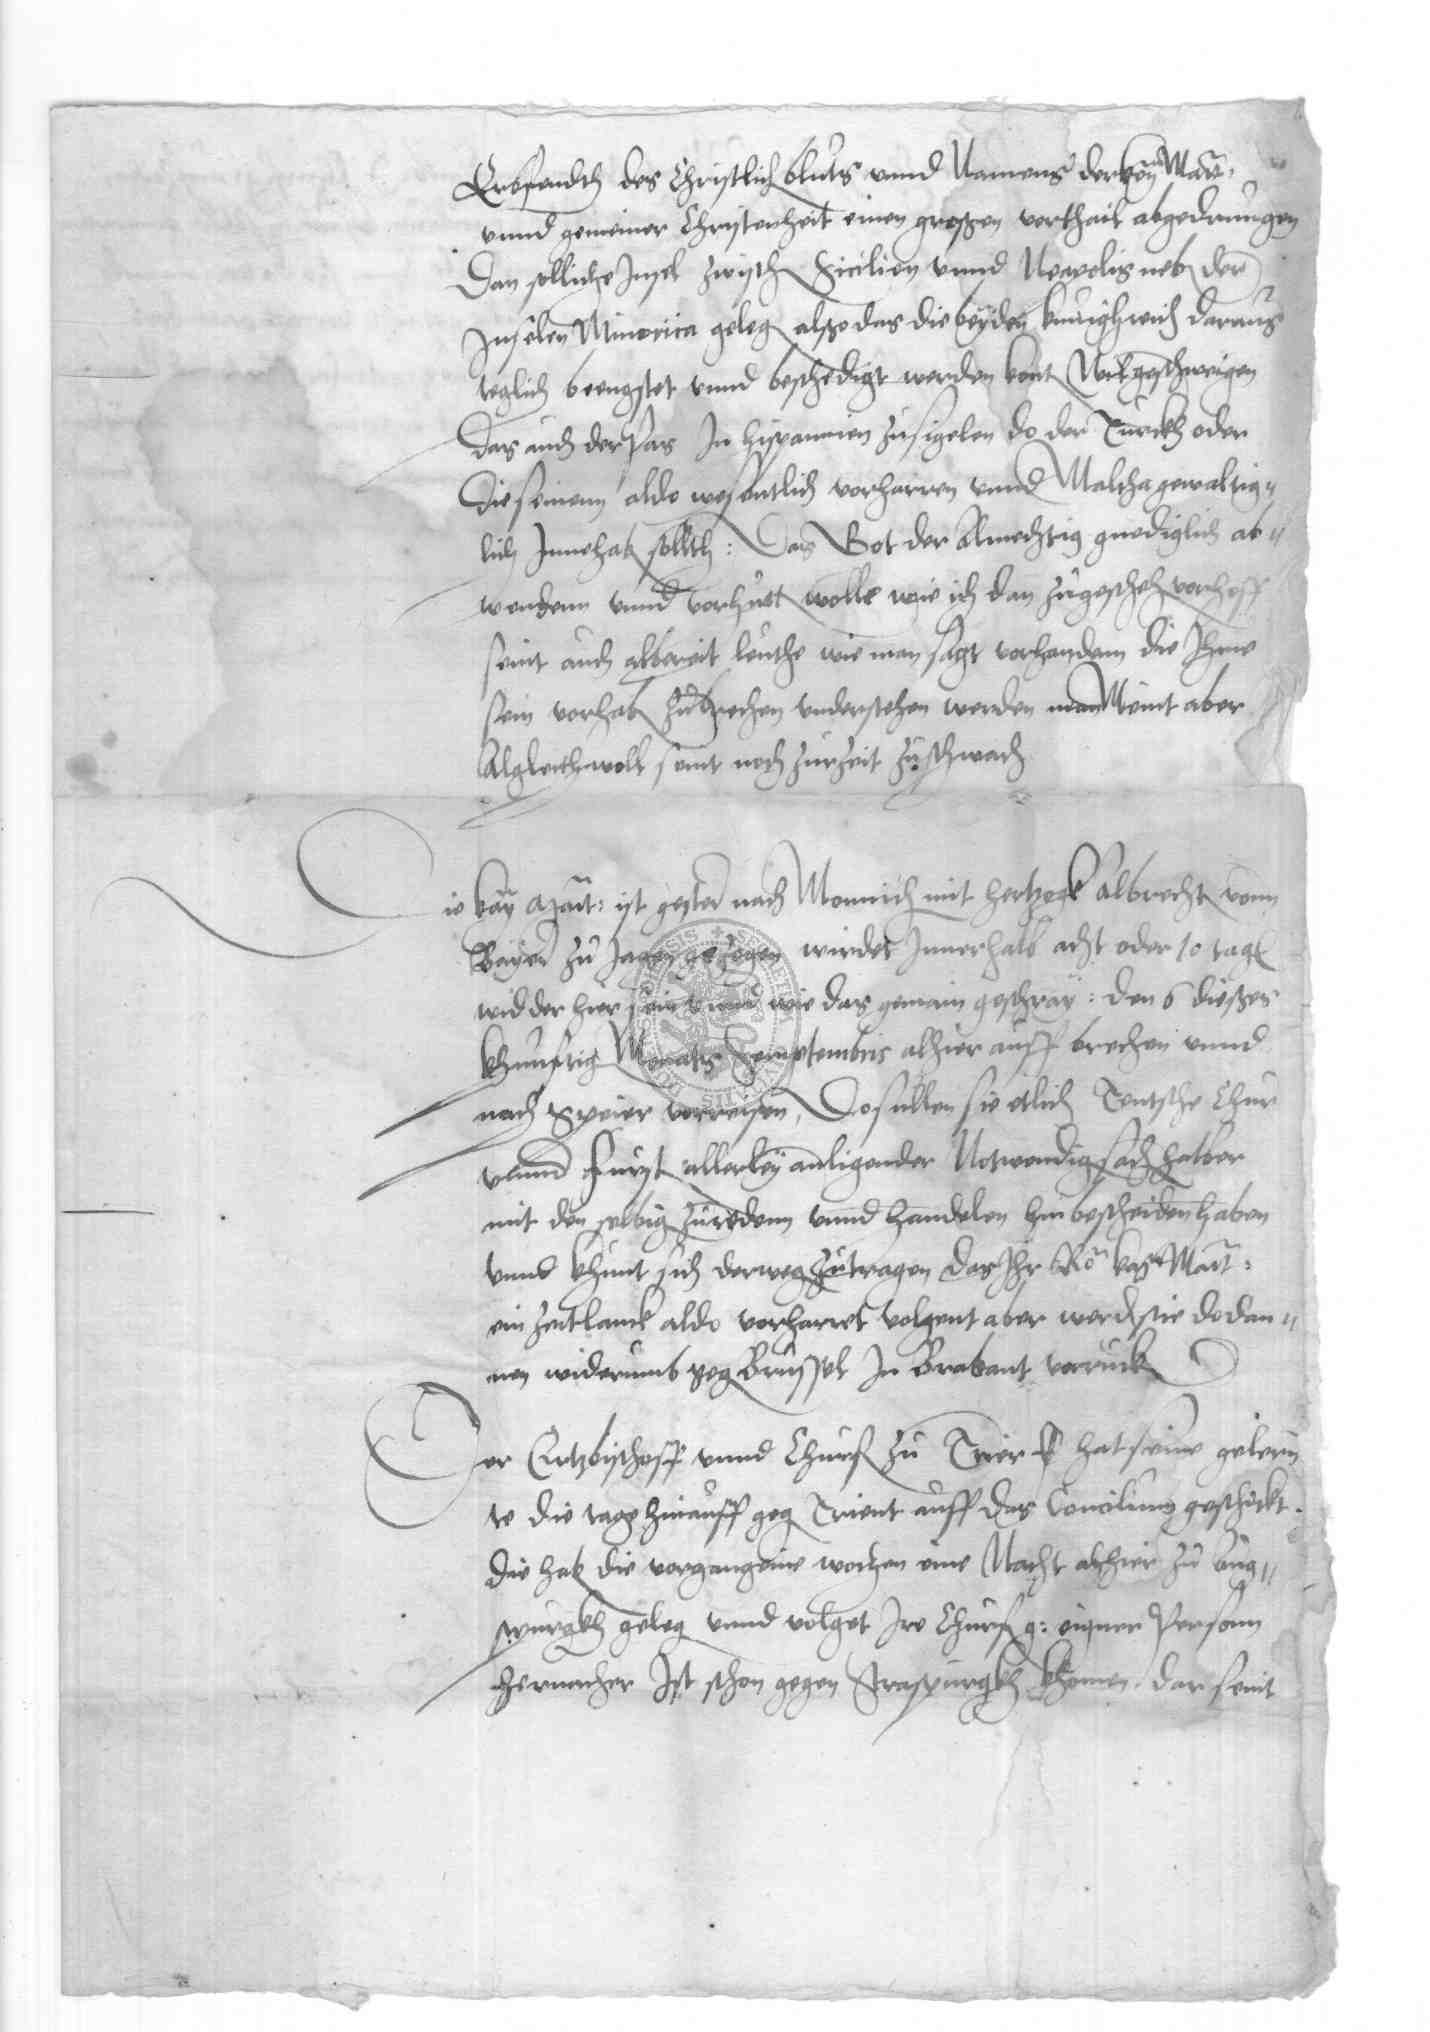 Erbfendth des Christlich bluts vnnd Namens der key Mait:
vnnd gemeiner Christenheit einen grossen vorthail abgedrungen
Dan solliche Insel zwisch Sicilien vnnd Neapolis neb der
Inselen Minorica geleg also das die beyden kunigkreich daraus
teglich beengstet vnnd beschedigt werden kont Wilgeschweigen
das auch der Pas In hispannien zusigelen do der Turckh oder
die seinenn aldo wesentlich vorharren vnnd Maltha gewaltig"
lich Innehab sollth: Das Got der Almechtig gnediglich ab"
wendenn vnnd vorhuet wolle wie ich dan zugescheh vorhoff
seint auch albereit leuthe wie man sagt vorhandenn die Ihme
sein vorhab zubrechen vnderstehen werden man Meint aber
Algleichwoll seint noch zurzeit zuschwach
Die key Mait: ist gester nach Monnich mit hertzogk Albrecht vonn
Bayer zu Jagen gezogen wirdet Innerhalb acht oder 10 tage
widder hier sein vnnd wie das gemain geschray: den 6 dieszes
khunftig Monatts Semptembris alhier auff brechen vnnd
nach Speier vorreisen, Do sullen sie etlich Teutsche Chur
vnnd Furst allerley anligender Notwendig sach halber
mit den selbig zuredenn vnnd handelen hin bescheiden haben
vnnd khunt sich derweg zutragen das Ihr Ro kay Mait:
ein zeitlanck aldo vorharret volgent aber werd sie dodan"
nen widerumb geg Brussel In Brabant vorruck
Der Ertzbischoff vnnd Churf zu Trier hat seine gelerin
te die tage hinauff geg Trient auff das Concilium geschickt.
die hab die vorgangene wochen eine Nacht alhier zu Aug"
spurgkh geleg vnnd volget Ire Churf g: eigner Personn
hernacher Ist schon gegen Straspurgkh khomen. dar seint